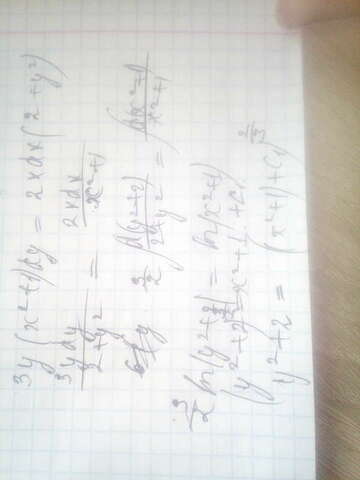 3y(x²+1)dy = 2xdx(2+y²)
3ydy/(2+y²) = 2xdx/(x²+1)
3/2 ∫ d(y²+2)/(2+y²) = ∫ d(x²+1)/(x²+1)
3/2 ln(y²+2) = ln(x²+1)
(y²+2)^(3/2) = x²+1+C
y²+2 = (x²+1)+C)^(2/3)